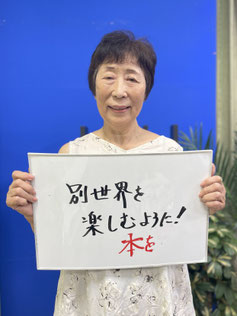 別世界を
楽しむように!
本を